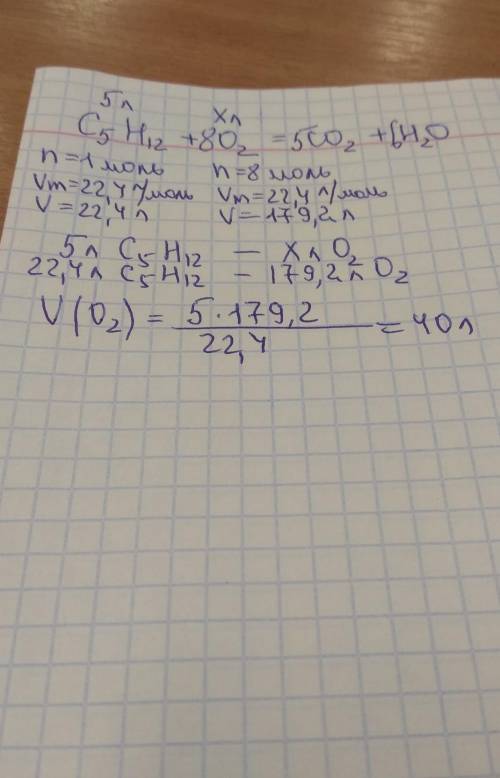 5л хл
C₅H₁₂ + 8O₂ = 5CO₂ + 6H₂O
n = 1 моль n = 8 моль
Vm = 22,4 л/моль Vm = 22,4 л/моль
V = 22,4 л V = 179,2 л
5л C₅H₁₂ — хл O₂
22,4л C₅H₁₂ — 179,2л O₂
V(O₂) = 5·179,2 / 22,4 = 40л